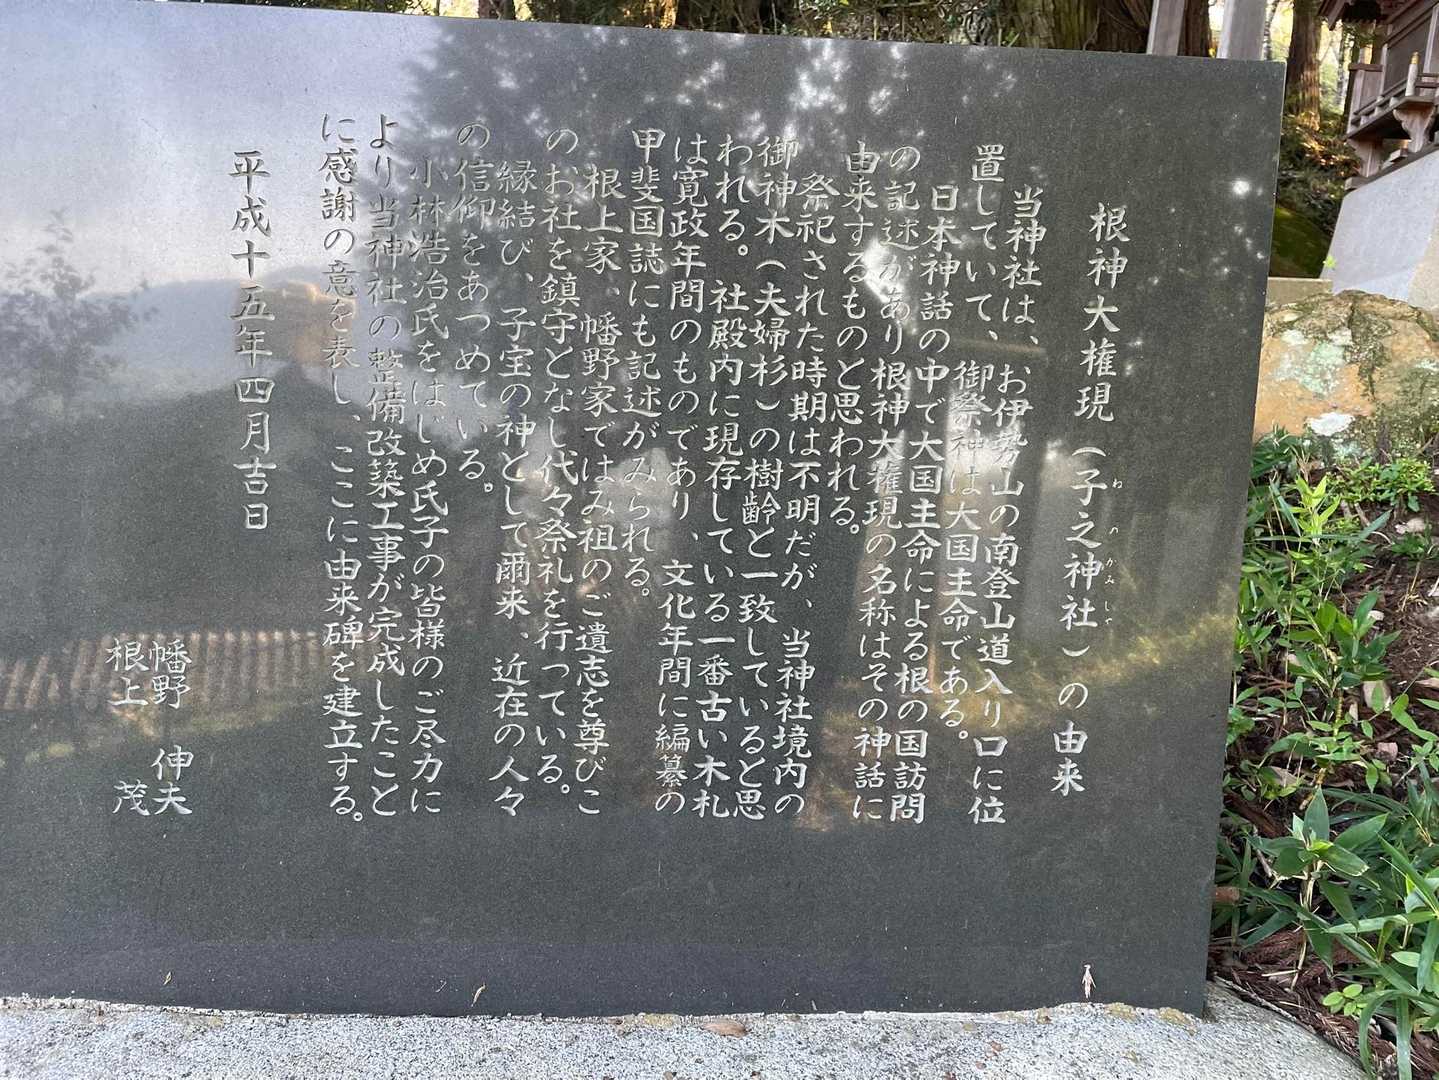 根神大権現（子之神社）の由来
当神社は、お伊勢山の南登山道入り口に位
置していて、御祭神は大国主命である。
日本神話の中で大国主命による根の国訪問
の記述があり根神大権現の名称はその神話に
由来するものと思われる。
祭祀された時期は不明だが、当神社境内の
御神木（夫婦杉）の樹齢と一致していると思
われる。社殿内に現存している一番古い木札
は寛政年間のものであり、文化年間に編纂の
甲斐国誌にも記述がみられる。
根上家、幡野家ではみ祖のご遺志を尊びこ
のお社を鎮守となし代々祭礼を行っている。
縁結び、子宝の神として爾来、近在の人々
の信仰をあつめている。
小林浩治氏をはじめ氏子の皆様のご尽力に
より当神社の整備改築工事が完成したこと
に感謝の意を表し、ここに由来碑を建立する。
平成十五年四月吉日
幡野 伸夫
根上 茂